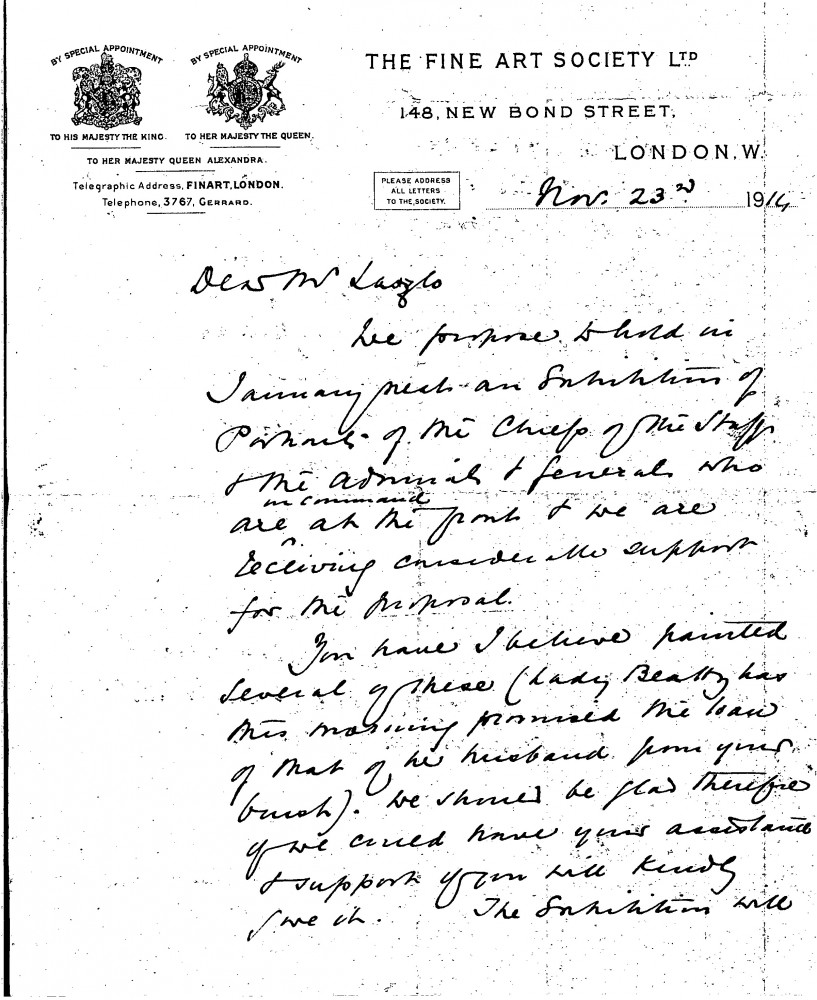 BY SPECIAL APPOINTMENT
TO HIS MAJESTY THE KING.
BY SPECIAL APPOINTMENT
TO HER MAJESTY THE QUEEN.
TO HER MAJESTY QUEEN ALEXANDRA.
Telegraphic Address, FINART, LONDON.
Telephone, 3767, GERRARD.
THE FINE ART SOCIETY LTD
148, NEW BOND STREET,
LONDON. W.
PLEASE ADDRESS
ALL LETTERS
TO THE SOCIETY.
Nov. 23rd 1914
Dear Mr Laszlo
We propose to hold in
January next an Exhibition of
Portraits of the Chiefs of the Staff
& the Admirals & Generals who
in command
are at the front & we are
receiving considerable support
for the proposal.
You have I believe painted
several of these (Lady Beatty has
this morning promised the loan
of that of her husband from your
brush). We should be glad therefore
if we could have your assistance
& support if you will kindly
give it. The Exhibition will